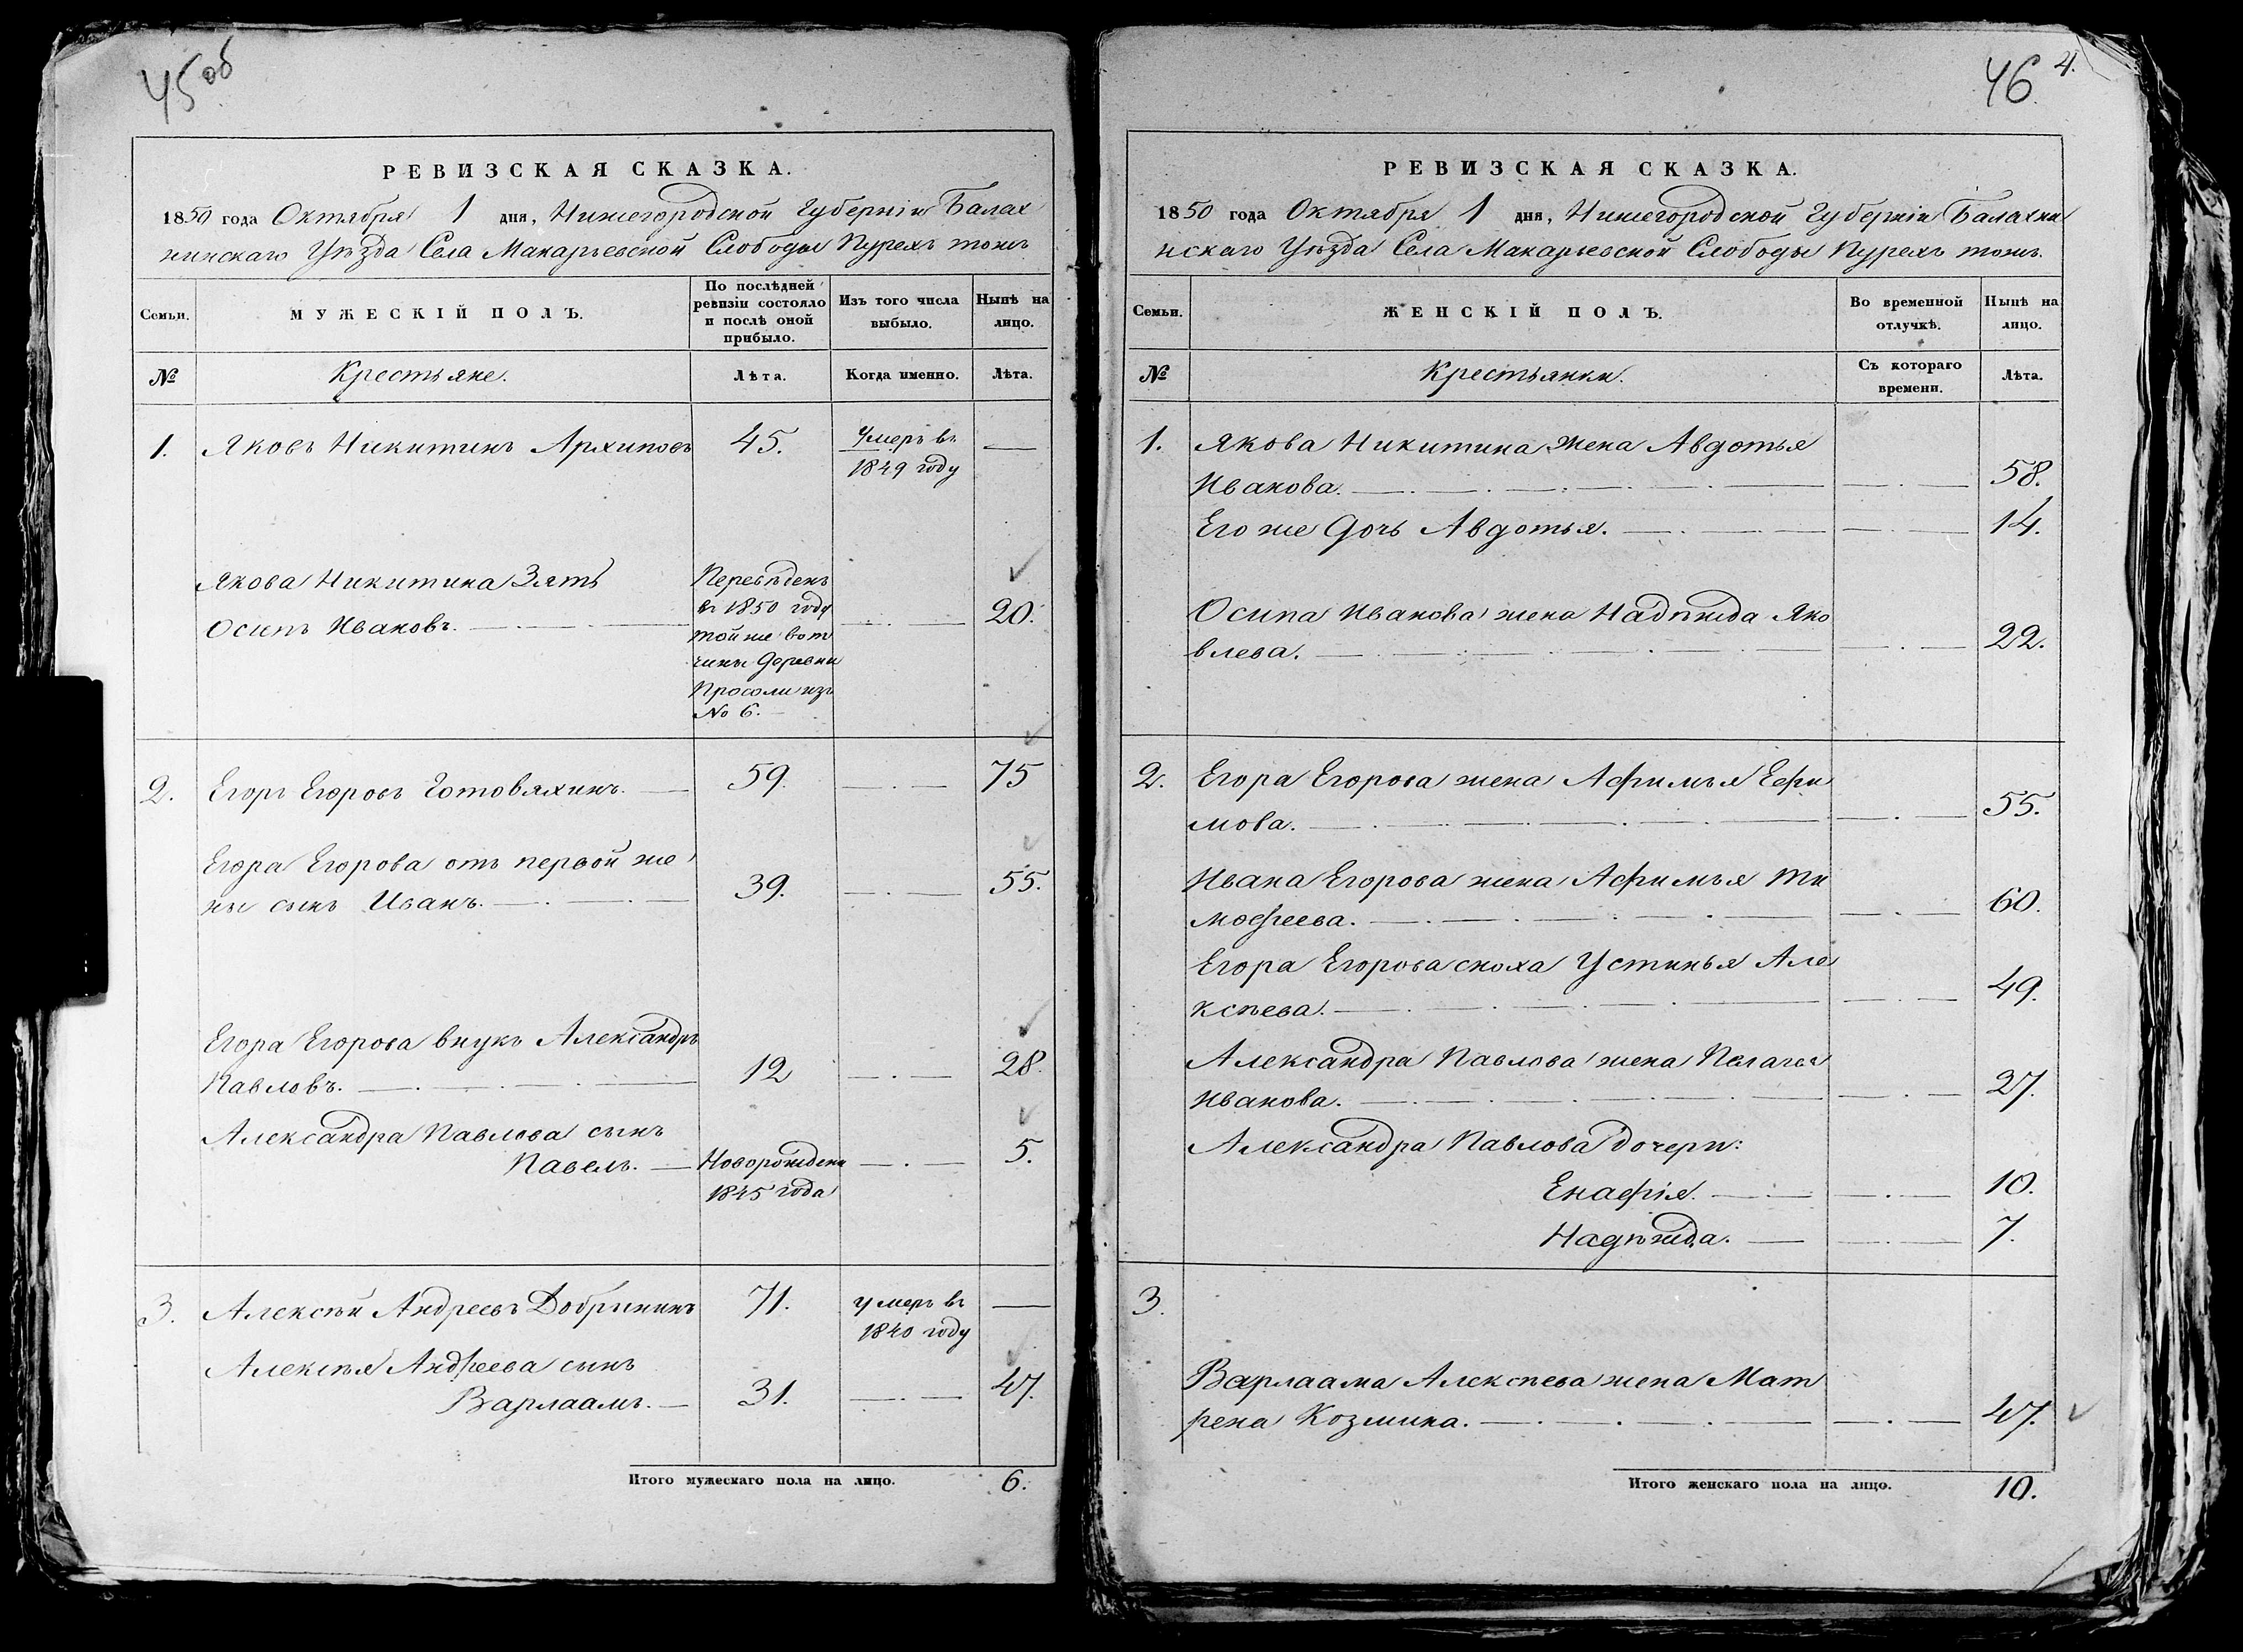 45 об
РЕВИЗСКАЯ СКАЗКА.
1850 года Октября 1 дня, Нижегородской Губерніи Балах
нинскаго Уѣзда Села Макарьевской Слободы Пурехъ тожъ
Семьи.
МУЖЕСКІЙ ПОЛЪ.
По послѣдней
ревизіи состояло
и послѣ оной
прибыло.
Изъ того числа
выбыло.
Нынѣ на
лицо.
№
Крестьяне.
Лѣта.
Когда именно.
Лѣта.
1. Яковъ Никитинъ Архиповъ 45. Умеръ въ —
1849 году
Якова Никитина Зять
Осипъ Ивановъ.
Переведенъ
въ 1850 году
той же вот
чины деревни
Просоли изъ
№ 6.
20.
2. Егоръ Егоровъ Готовяхинъ. 59. 75
Егора Егорова отъ первой же
ны сынъ Иванъ. 39. 55.
Егора Егорова внукъ Александръ
Павловъ. 12 28.
Александра Павлова сынъ
Павелъ. Новорожденъ 5.
1845 года
3. Алексѣй Андреевъ Добрининъ 71. умеръ въ —
1840 году
Алексѣя Андреева сынъ
Варлаамъ. 31. 47.
Итого мужескаго пола на лицо. 6.
46 4.
РЕВИЗСКАЯ СКАЗКА.
1850 года Октября 1 дня, Нижегородской Губерніи Балахни
нскаго Уѣзда Села Макарьевской Слободы Пурехъ тожъ.
Семьи.
ЖЕНСКІЙ ПОЛЪ.
Во временной
отлучкѣ.
Нынѣ на
лицо.
№
Крестьянки.
Съ котораго
времени.
Лѣта.
1. Якова Никитина Жена Авдотья
Иванова. 58.
Его же дочь Авдотья. 14.
Осипа Иванова жена Надѣжда Яко
влева. 22.
2. Егора Егорова жена Афимья Ефи
мова. 55.
Ивана Егорова жена Афимья Ти
мофеева. 60.
Егора Егорова сноха Устинья Але
ксѣева. 49.
Александра Павлова жена Пелагья
Иванова. 27.
Александра Павлова дочери:
Енафія. 10.
Надѣжда. 7.
3.
Варлаама Алексѣева жена Мат
рена Козмина. 47.
Итого женскаго пола на лицо. 10.